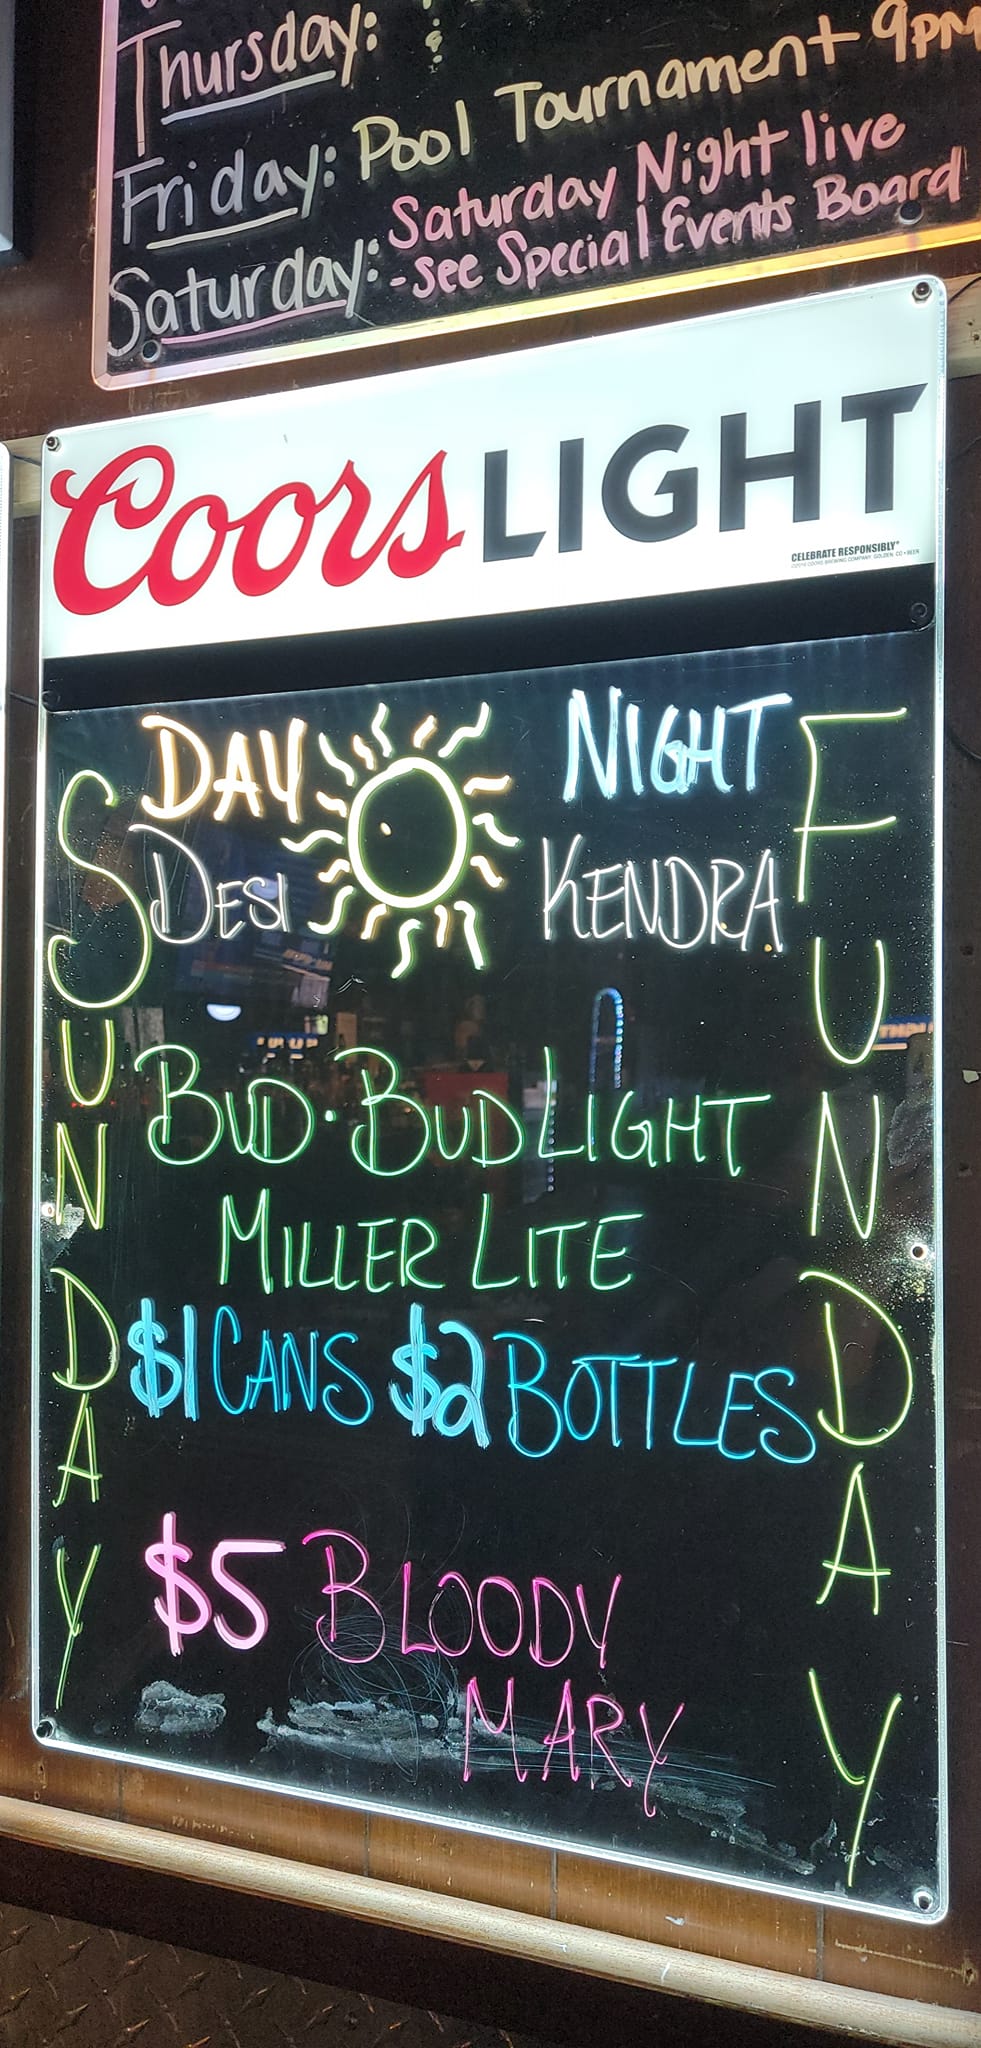 Thursday:
Friday: Pool Tournament 9pm
Saturday: Saturday Night live
-See Special Events Board
Coors LIGHT
CELEBRATE RESPONSIBLY®
DAY NIGHT
DESI KENDRA
SUNDAY
FUNDAY
BUD · BUD LIGHT
MILLER LITE
$1 CANS $2 BOTTLES
$5 BLOODY
MARY